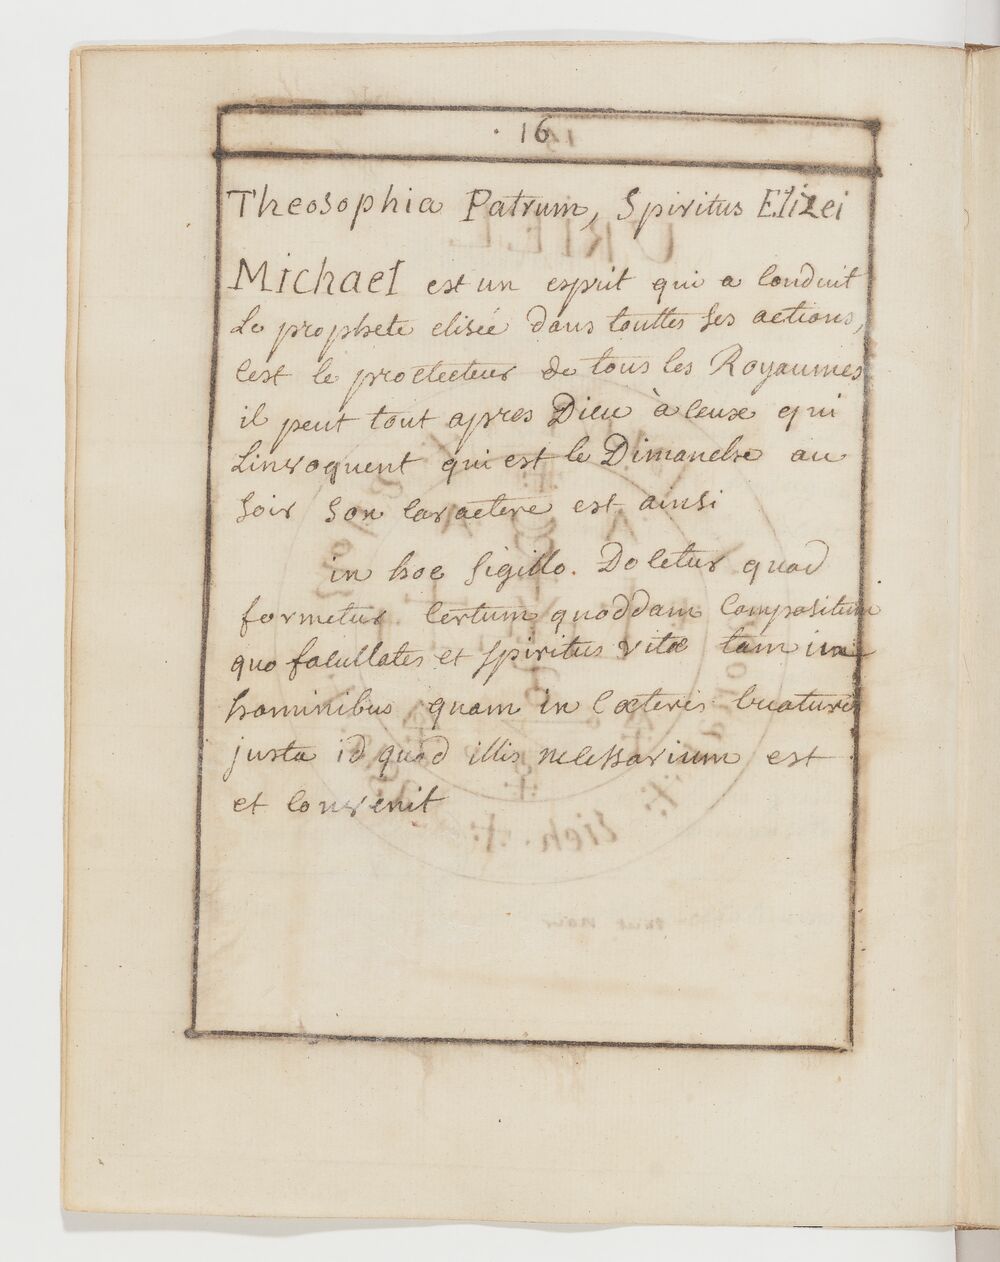 . 16
Theosophia Patrum, Spiritus Elizei
Michael est un esprit qui a conduit
Le prophete elisée dans touttes ses actions,
cest le protecteur de tous les Royaumes
il peut tout apres Dieu à ceux qui
Linvoquent qui est le Dimanche au
soir son caractere est ainsi
in hoc sigillo. Docetur quod
formetur certum quoddam compositum
quo facultates et spiritus vitæ tam in
hominibus quam in cæteris creaturis
justa id quod illis necessarium est
et convenit